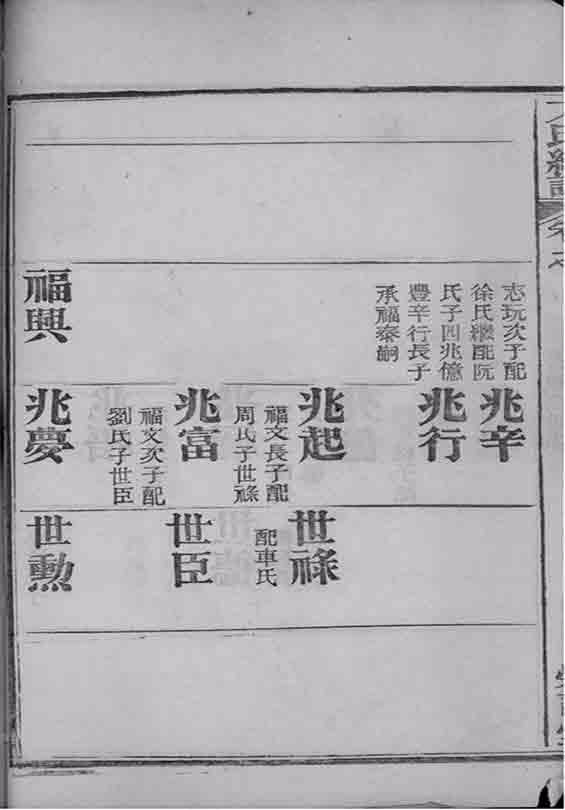 志玩次子配
徐氏繼配阮
氏子四兆億
豐辛行長子
承福泰嗣
福興
兆辛
兆行
兆起
福文長子配
周氏子世祿
兆富
福文次子配
劉氏子世臣
兆夢
世祿
配車氏
世臣
世勲